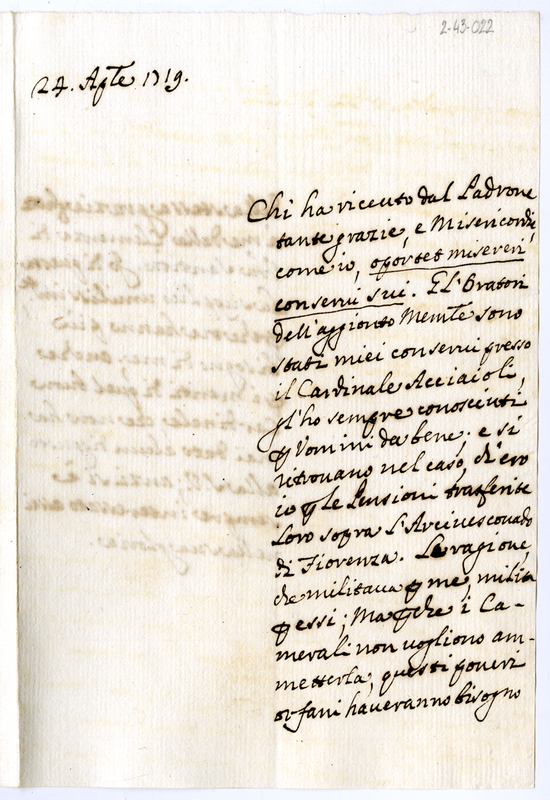 2-43-022
24. Aple 1719.
Chi ha riceuto dal Padrone
tante grazie, e Misericordie,
come io, oportet misereri
conserui sui. Gl'Oratori
dell'aggionto Memle sono
stati miei conserui presso
il Cardinale Acciaioli,
gl'ho sempre conosciuti
p Uomini da bene; e si
retrouano nel caso, ch'ero
io p le Pensioni trasferite
loro sopra l'Arciuescouado
di Fiorenza. Le ragione,
che militaua p me, milita
p essi; Ma pche i Ca-
merali non uogliono am-
metterla, questi poueri
orfani haueranno bisogno